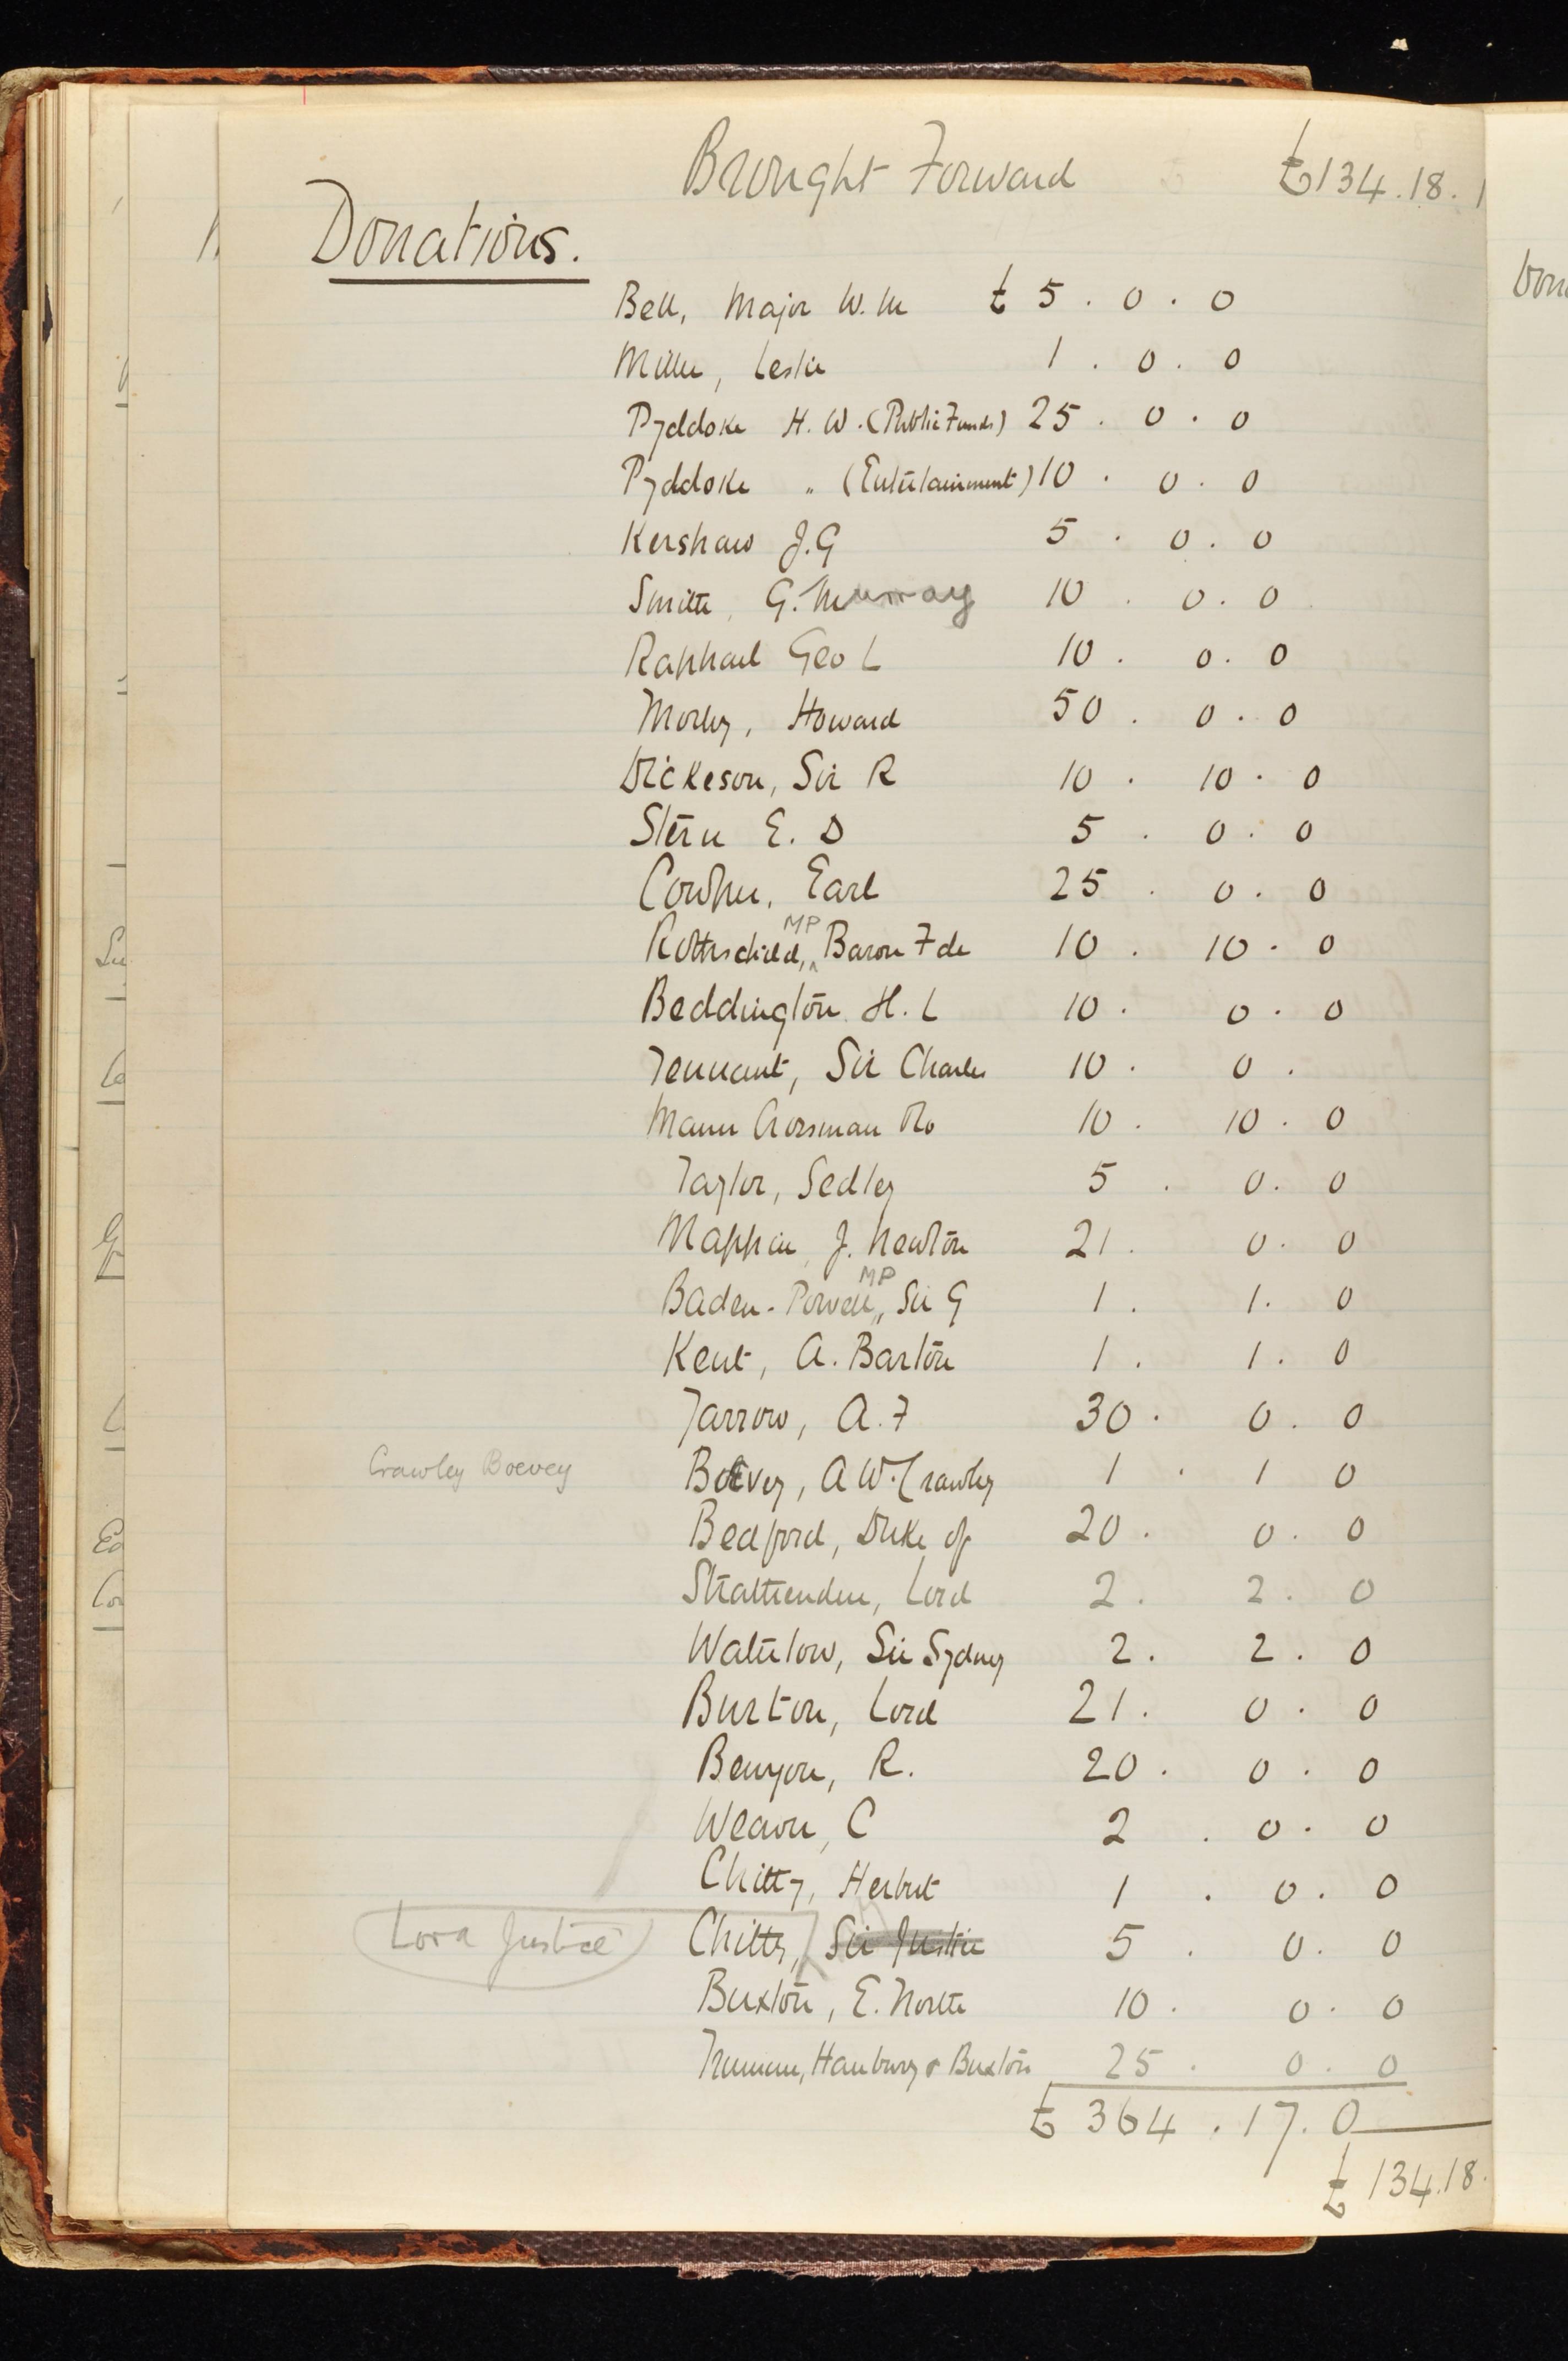 Brought Forward £134.18.1
Donations.
Bell, Major W. M £ 5 . 0 . 0
Miller, Leslie 1 . 0 . 0
Pyddoke H. W. (Public Funds) 25 . 0 . 0
Pyddoke " (Entertainment) 10 . 0 . 0
Kershaw J.G 5 . 0 . 0
Smith, G. Murray 10 . 0 . 0
Raphael Geo L 10 . 0 . 0
Morley, Howard 50 . 0 . 0
Dickeson, Sir R 10 . 10 . 0
Stern E. D 5 . 0 . 0
Cowper, Earl 25 . 0 . 0
Rothschild, MP Baron F de 10 . 10 . 0
Beddington H. L 10 . 0 . 0
Tennant, Sir Charles 10 . 0 .
Mann Crossman &c 10 . 10 . 0
Taylor, Sedley 5 . 0 . 0
Mappin, J. Newton 21 . 0 . 0
Baden-Powell, MP Sir G 1 . 1 . 0
Kent, A. Barton 1 . 1 . 0
Yarrow, A. F 30 . 0 . 0
Crawley Boevey Boevey, A W. Crawley 1 . 1 0
Bedford, Duke of 20 . 0 . 0
Strathenden, Lord 2 . 2 . 0
Waterlow, Sir Sydney 2 . 2 . 0
Burton, Lord 21 . 0 . 0
Benyon, R. 20 . 0 . 0
Weaver, C 2 . 0 . 0
Chitty, Herbert 1 . 0 . 0
Lord Justice Chitty, Sir Justice 5 . 0 . 0
Buxton, E. North 10 . 0 . 0
Truman, Hanbury & Buxton 25 . 0 . 0
£ 364 . 17 . 0
£ 134.18.